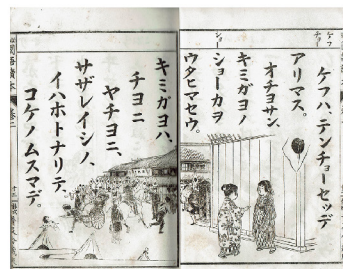 ケフ
チョー
ケフハ、テンチョーセツデ
アリマス。
オチヨサン、
キミガヨノ
ショーカヲ
ウタヒマセウ。
ショー
キミガヨハ、
チヨニ
ヤチヨニ、
サザレイシノ、
イハホトナリテ、
コケノムスマデ。